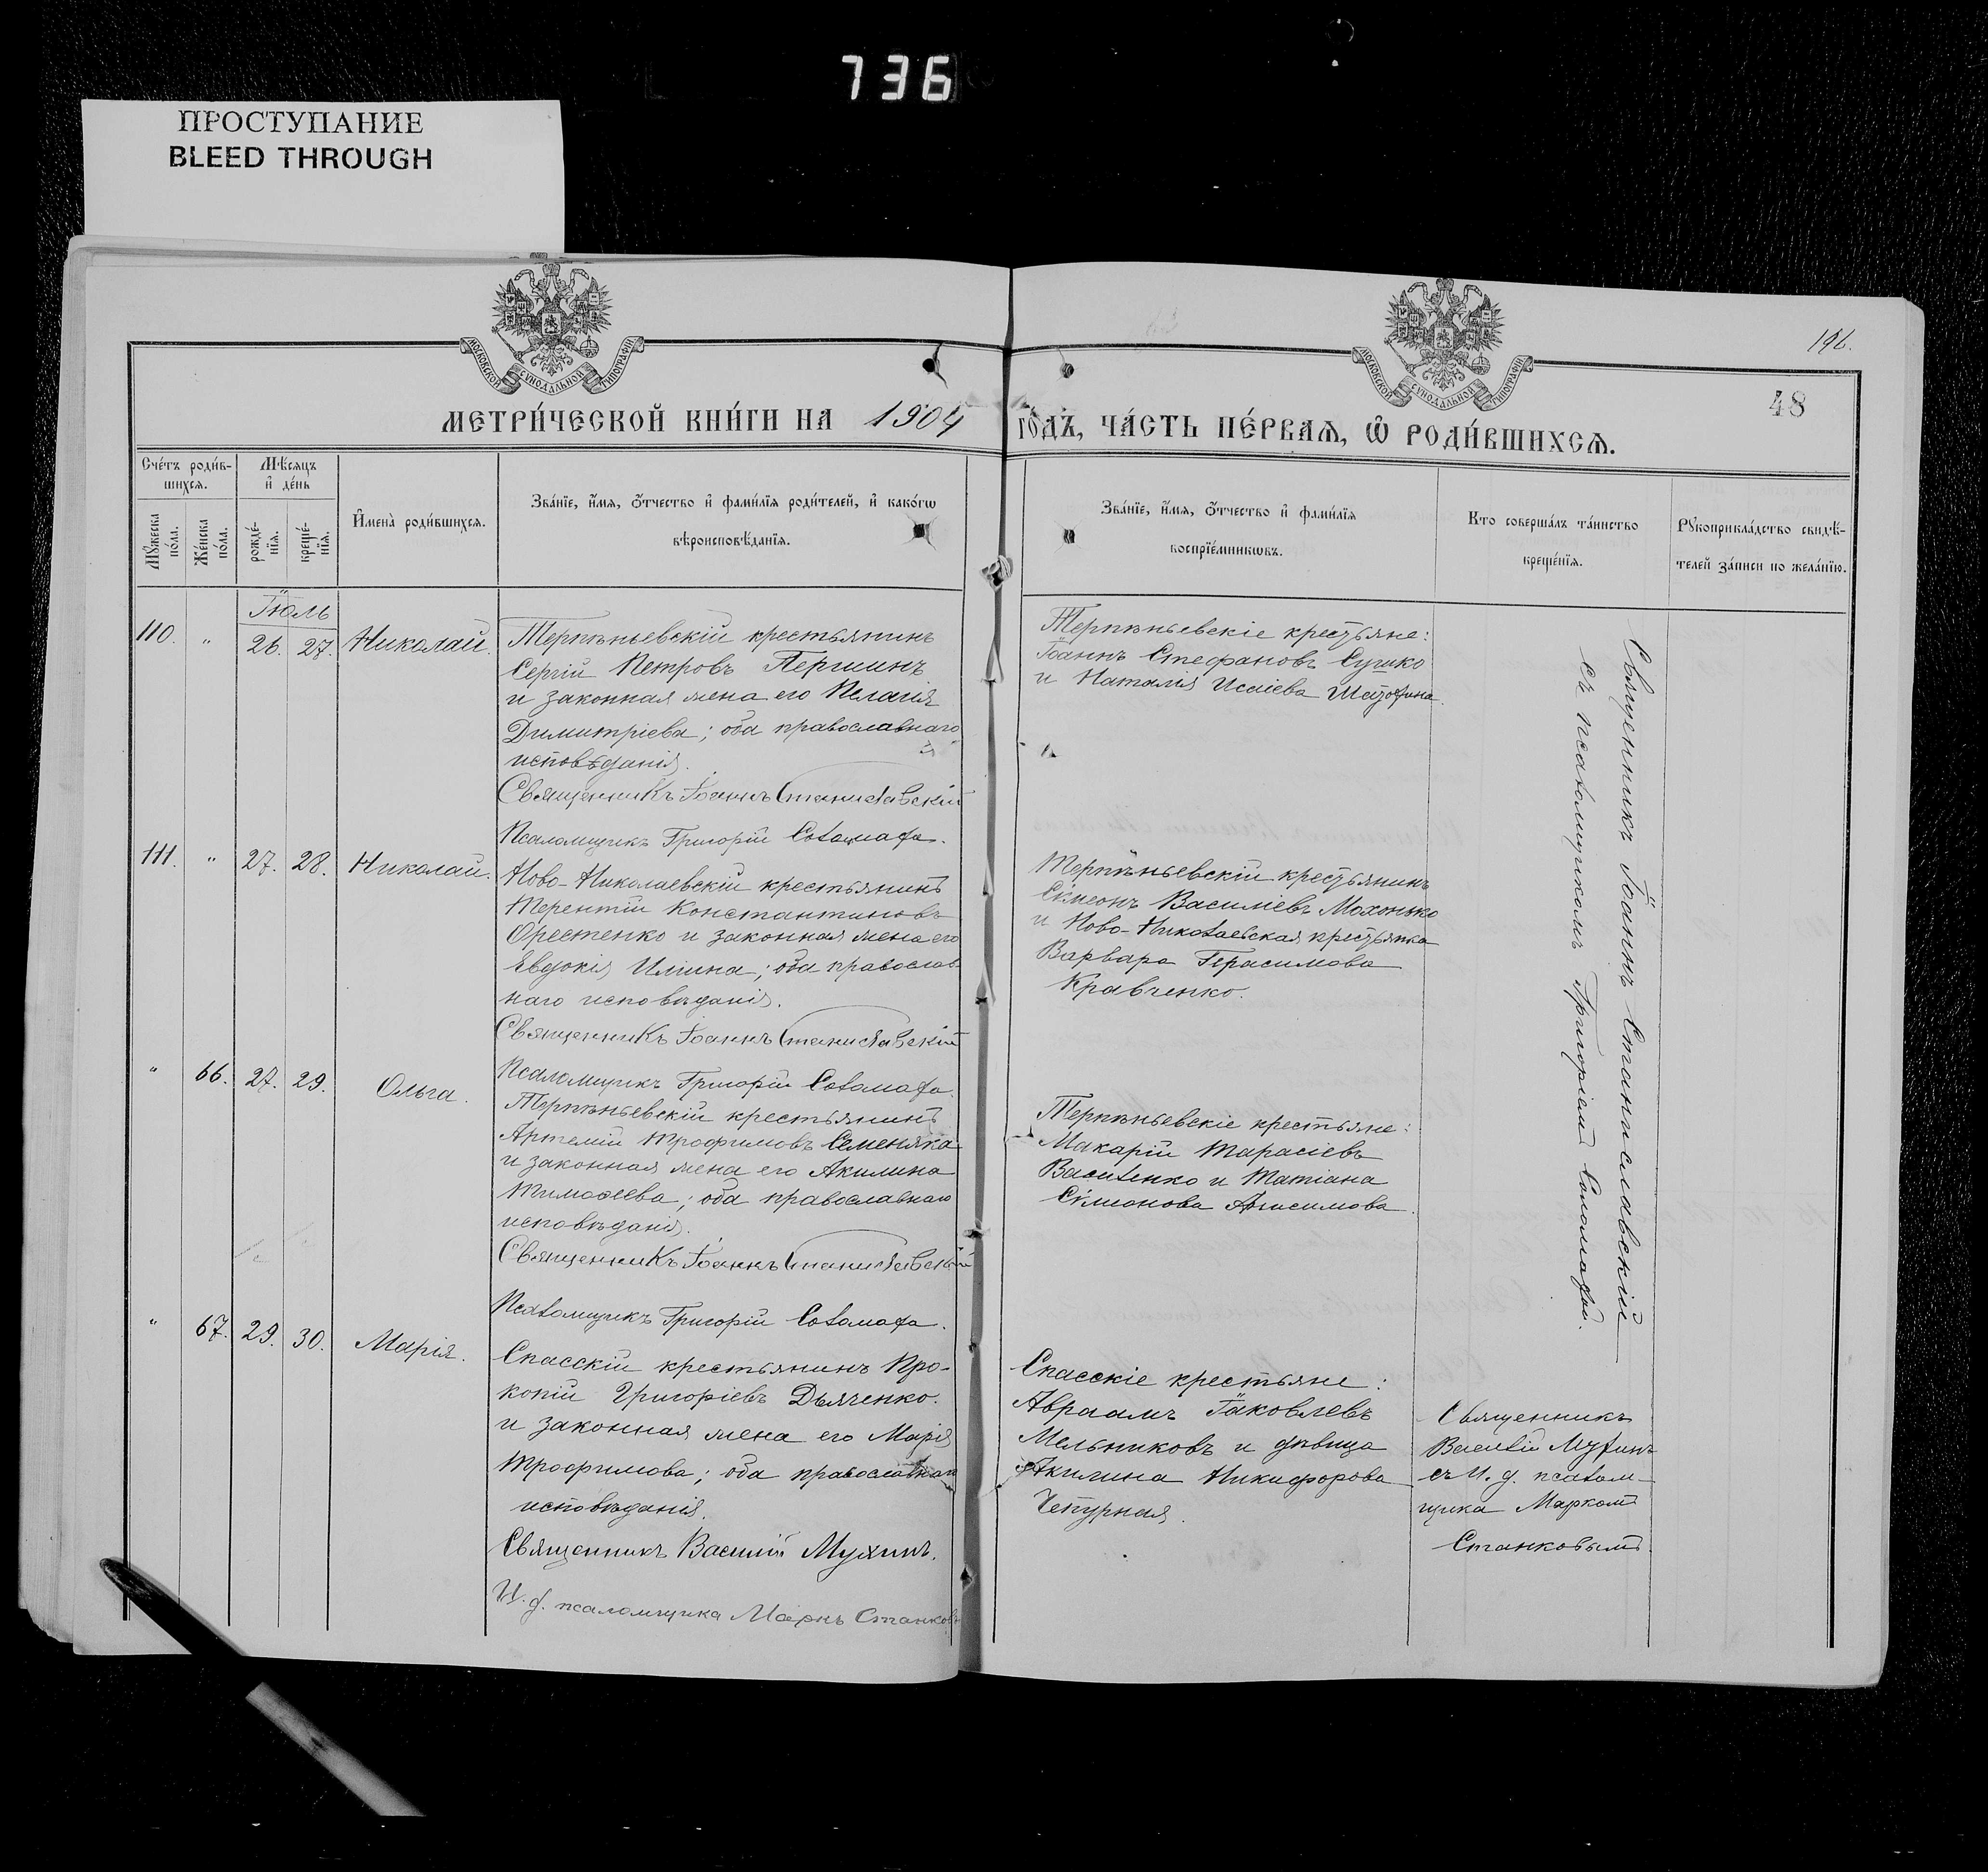 736
ПРОСТУПАНИЕ
BLEED THROUGH
МОСКОВСКОЙ СУНОДАЛЬНОЙ ТИПОГРАФІИ
МОСКОВСКОЙ СУНОДАЛЬНОЙ ТИПОГРАФІИ
196.
48
МЕТРИ́ЧЕСКОЙ КНИ́ГИ НА 1904
ГО́ДЪ, ЧА́СТЬ ПЕ́РВАѦ, Ѽ РОДИ́ВШИХСѦ.
Сче́тъ роди́в-
шихсѧ.
Мѣ́сяцъ
и҆ де́нь
Мꙋ́жеска
по́ла.
Же́нска
по́ла.
рожде́-
нїѧ.
креще́-
нїѧ.
И҆мена̀ роди́вшихсѧ.
Зва́нїе, и҆́мѧ, ѻ҆́тчество и҆ фами́лїѧ роди́телей, и҆ како́гѡ
вѣроисповѣ́данїѧ.
Зва́нїе, и҆́мѧ, ѻ҆́тчество и҆ фами́лїѧ
воспрїе́мникѡвъ.
Кто соверша́лъ та́инство
креще́нїѧ.
Рꙋкоприкла́дство свидѣ́-
телей за́писи по жела́нїю.
Іюль
110. " 26. 27. Николай.
Терпѣньевскій крестьянинъ
Сергій Петровъ Першинъ
и законная жена его Пелагія
Димитріева; оба православнаго
исповѣданія.
Священникъ Іоаннъ Станиславскій
Псаломщикъ Григорій Соломаха.
Терпѣньевскіе крестьяне:
Іоаннъ Стефановъ Сушко
и Наталія Исаіева
111. " 27. 28. Николай.
Ново-Николаевскій крестьянинъ
Терентій Константиновъ
Орестенко и законная жена его
Евдокія Иліина; оба православ-
наго исповѣданія.
Священникъ Іоаннъ Станиславскій
Псаломщикъ Григорій Соломаха.
Терпѣньевскій крестьянинъ
Сѵмеонъ Василіевъ Мохонько
и Ново-Николаевская крестьянка
Варвара Герасимова
Кравченко.
" 66. 27. 29. Ольга.
Терпѣньевскій крестьянинъ
Артемій Трофимовъ Семеняка
и законная жена его Акилина
Тимоѳеева; оба православнаго
исповѣданія.
Священникъ Іоаннъ Станиславскій
Псаломщикъ Григорій Соломаха.
Терпѣньевскіе крестьяне:
Макарій Тарасіевъ
Василенко и Татіана
Сѵмеонова Анисимова.
Священникъ Іоаннъ Станиславскій
съ псаломщикомъ Григоріемъ Соломахой.
" 67. 29. 30. Марія.
Спасскій крестьянинъ Про-
копій Григоріевъ Дьяченко.
и законная жена его Марія
Трофимова; оба православнаго
исповѣданія.
Священникъ Василій Мухинъ.
И. д. псаломщика Маркъ Станковъ
Спасскіе крестьяне:
Авраамъ Іаковлевъ
Мельниковъ и дѣвица
Акилина Никифорова
Чепурная.
Священникъ
Василій Мухинъ
съ И. д. псалом-
щика Маркомъ
Станковымъ.